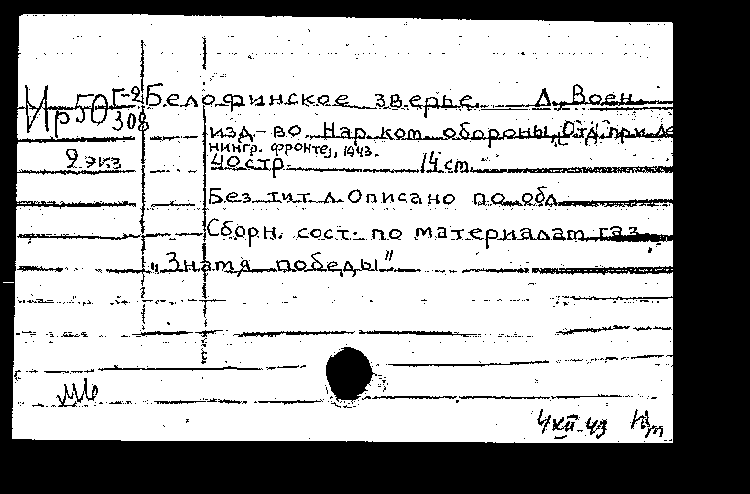 Ир50 Г-2 Белофинское зверье. Л., Воен.
308
изд-во Нар. ком. обороны, Отд. при Ле
нингр. фронте, 1943.
2 экз
40 стр. 14 см.
Без тит. л. Описано по обл.
Сборн. сост. по материалам газ.
„Знамя победы"
4 XII 43